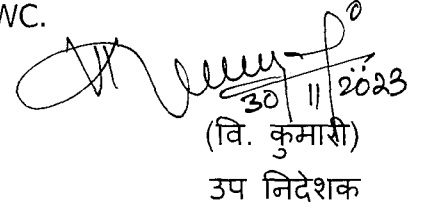 WC.
30/11/2023
(वि. कुमारी)
उप निदेशक